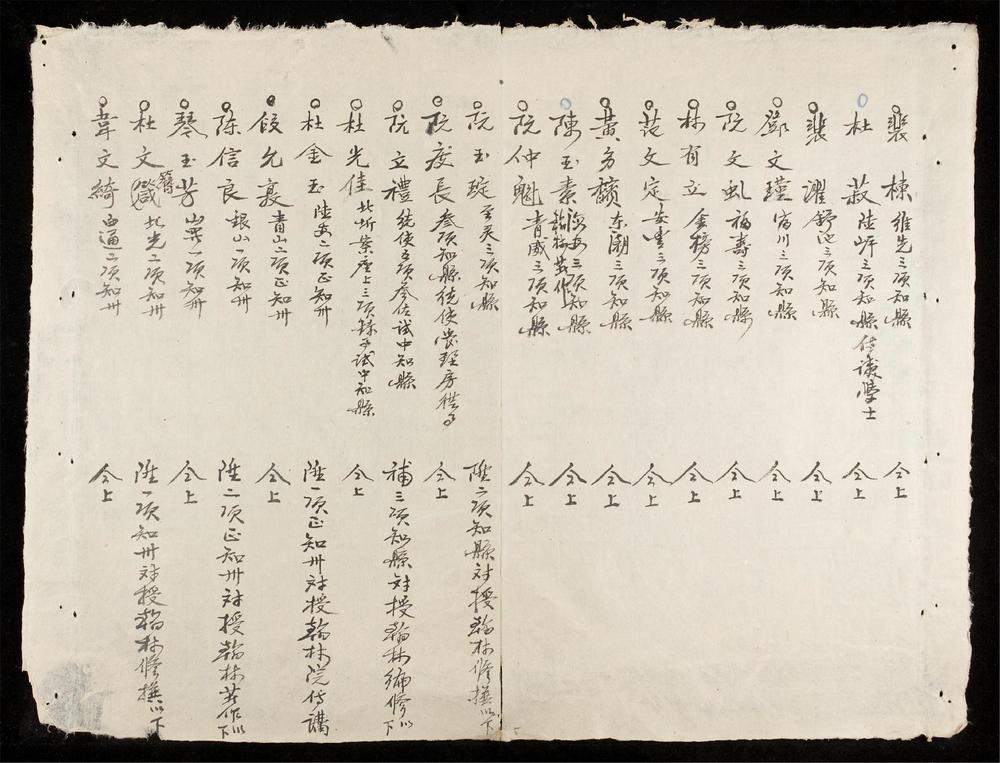 裴棟維先三項知縣 仝上
杜菽陸岸三項知縣侍議學士 仝上
裴濯舒池三項知縣 仝上
鄧文瑾富川三項知縣 仝上
阮文虬福壽三項知縣 仝上
林有立金榜三項知縣 仝上
范文定安豊三項知縣 仝上
黃方東潮三項知縣 仝上
陳玉素三項知縣翰林著作 仝上
阮仲魁青威三項知縣 仝上
阮玉琔至灵三項知縣 陞二項知縣対授翰林修撰以下
阮度長叁項知縣統使掌理房供事 仝上
阮立禮統使五項叁佐試中知縣 補三項知縣対授翰林編修以下
杜光佳北圻案座上三項錄事試中知縣 仝上
杜金玉陸安二項正知州 陞一項正知州対授翰林院侍講
段允襄青山二項正知州 仝上
陳信良銀山一項知州 陞二項正知州対授翰林著作以下
琴玉芳山羅一項知州 仝上
杜文簪北光二項知州 陞一項知州対授翰林修撰以下
韋文綺卤逼二項知州 仝上